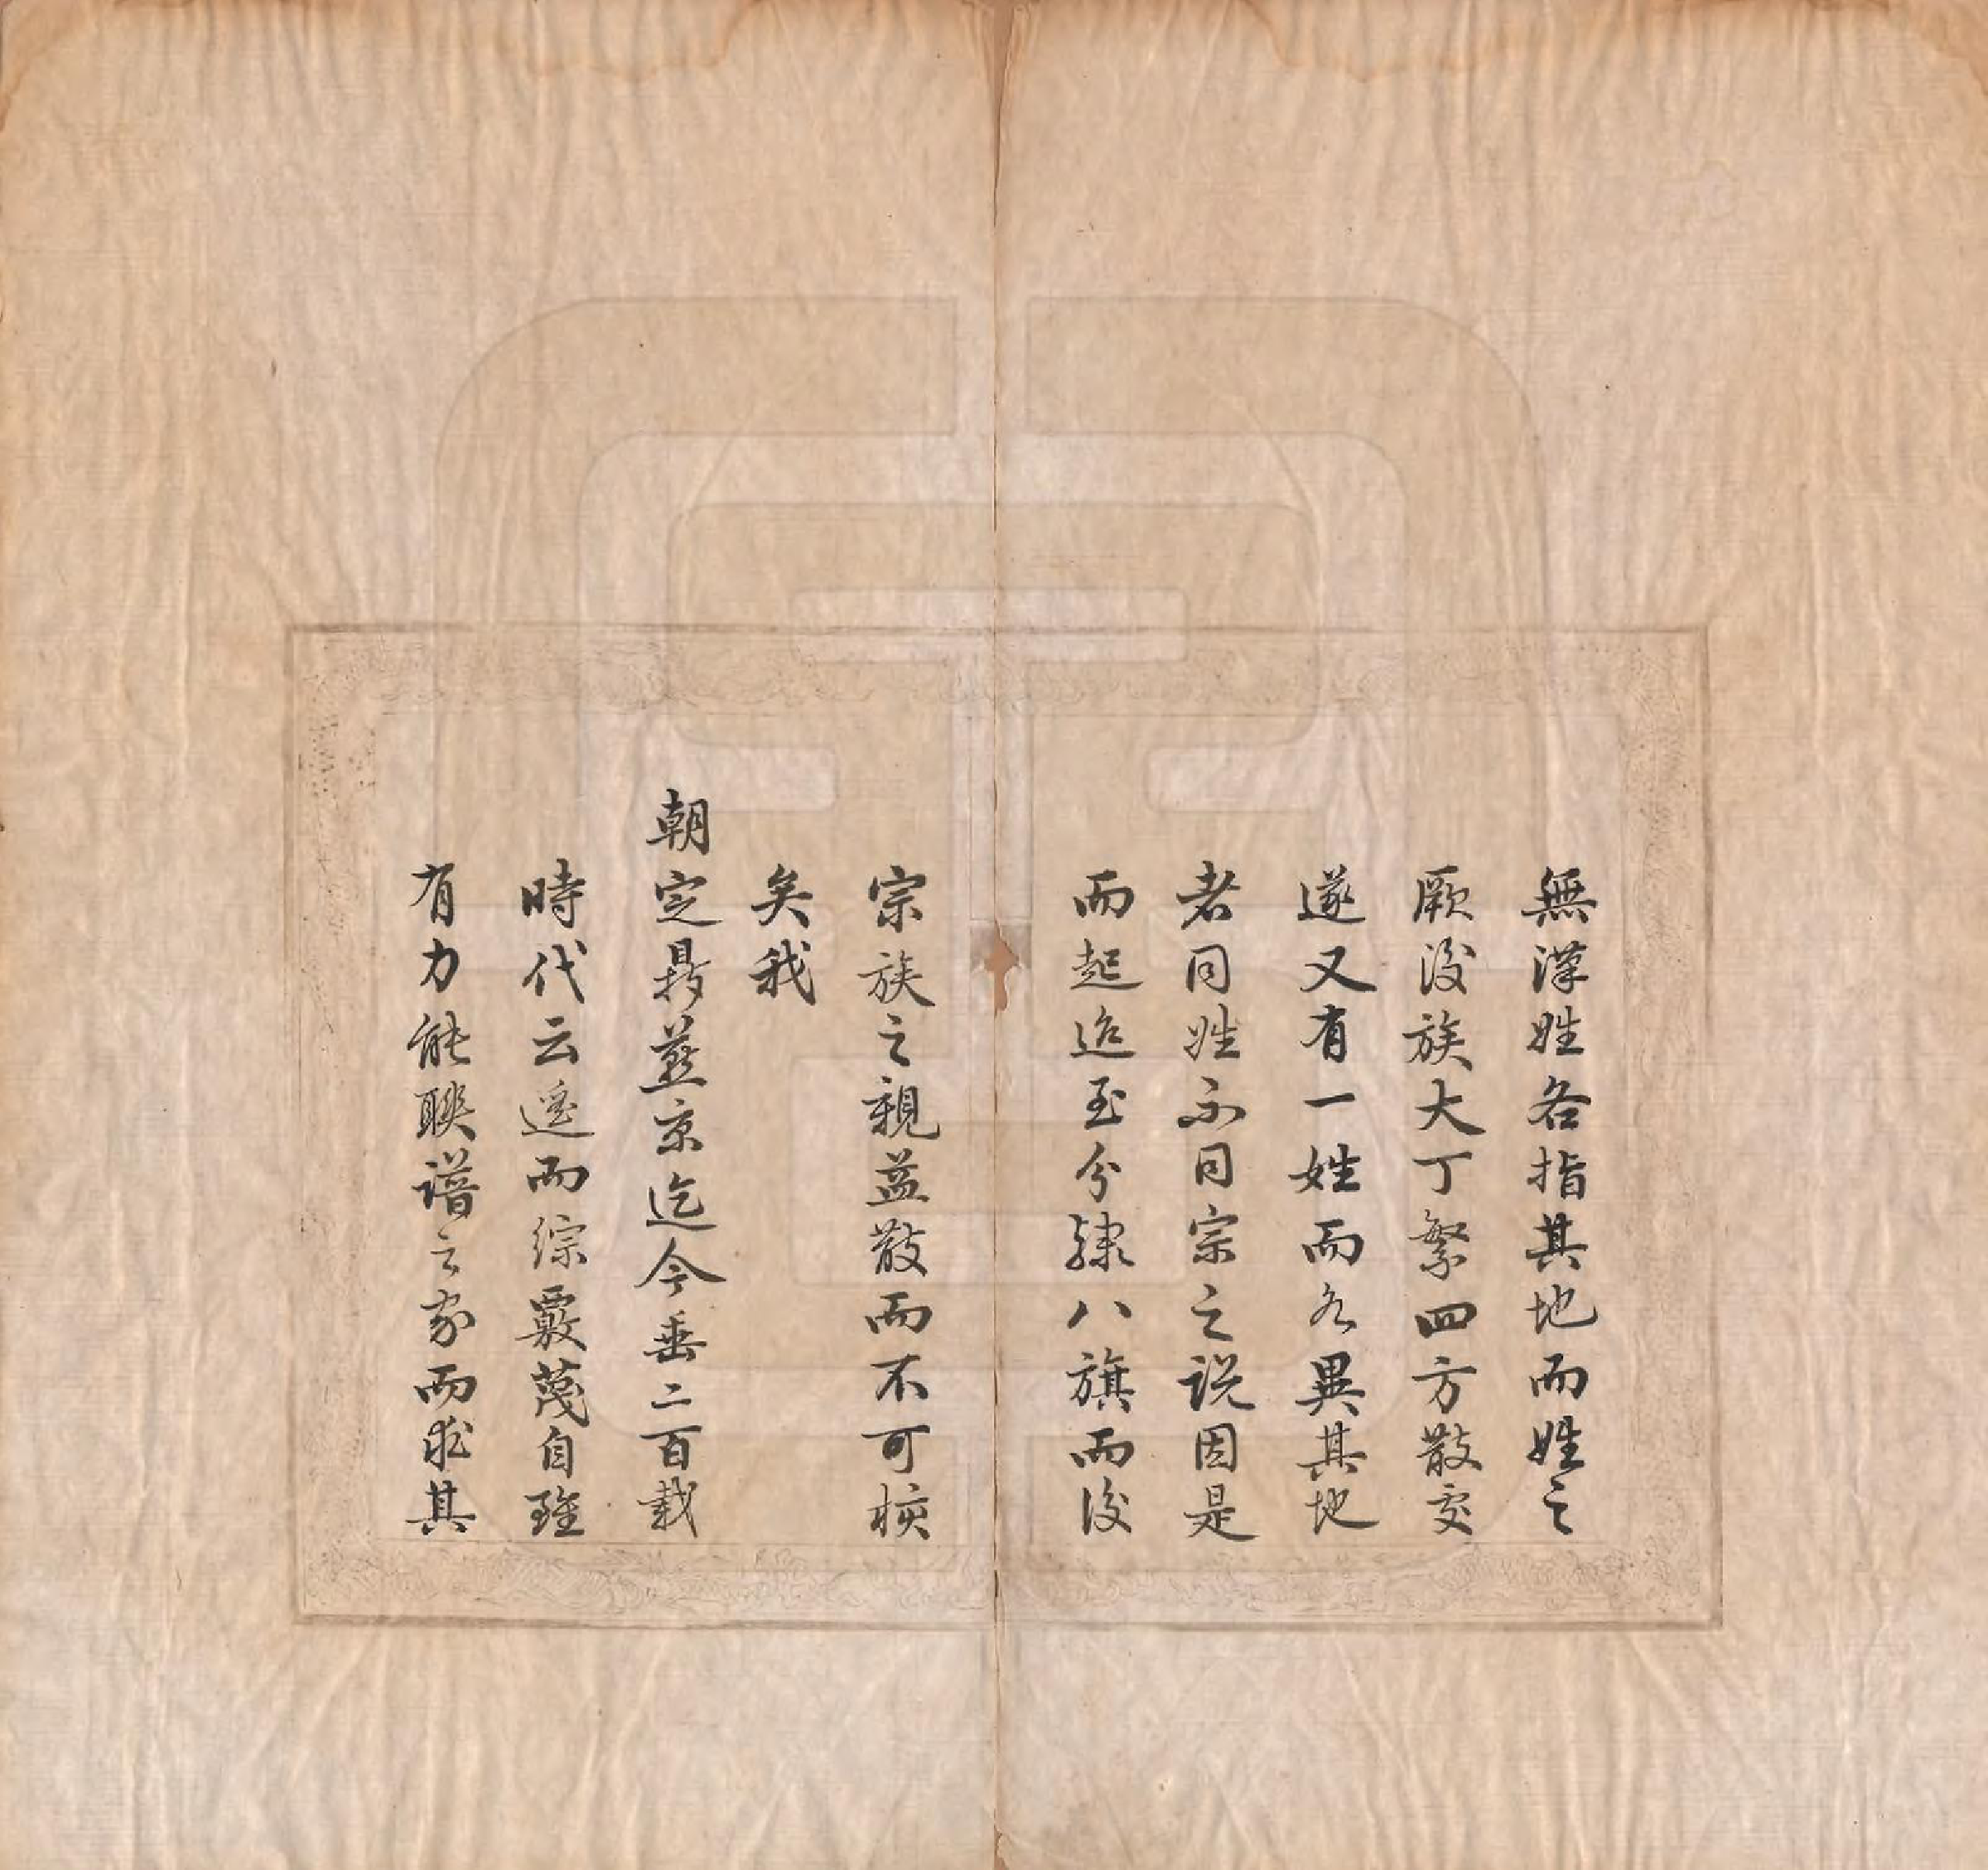 無漢姓各指其地而姓之
厥後族大丁繁四方散處
遂又有一姓而各異其地
者同姓不同宗之説因是
而起迨至分隷八旗而後
宗族之親益散而不可核
矣我
朝定鼎燕京迄今垂二百載
時代云遥而綜覈蔑自雖
有力能聯譜之家而求其